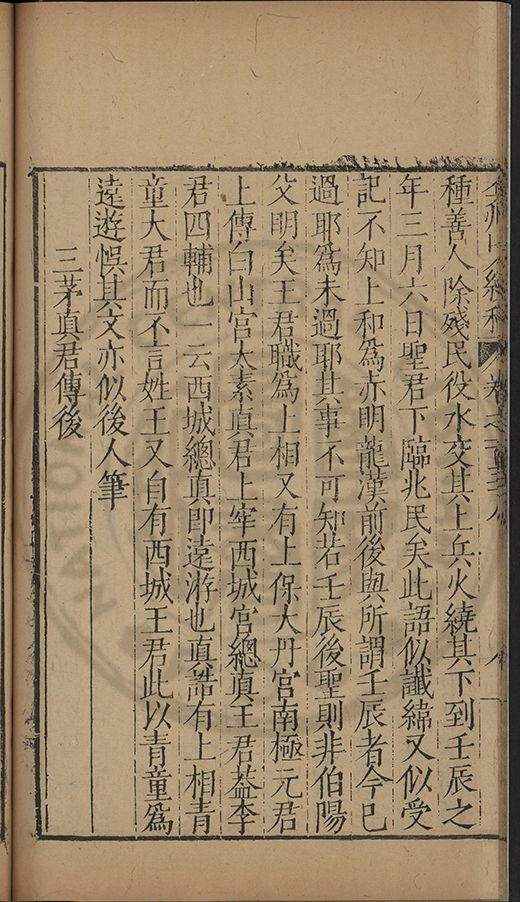 種善人除殘民役水交其上兵火繞其下到壬辰之
年三月六日聖君下臨兆民矣此語似讖緯又似受
記不知上和為赤明龍漢前後與所謂壬辰者今已
過耶為未過耶其事不可知若壬辰後聖則非伯陽
父明矣王君職為上相又有上保大丹宮南極元君
上傅白山宮太素真君上宰西城宮總真王君蓋李
君四輔也一云西城總真即遠游也真誥有上相青
童大君而不言姓王又自有西城王君此以青童為
遠遊悞其文亦似後人筆
三茅真君傳後